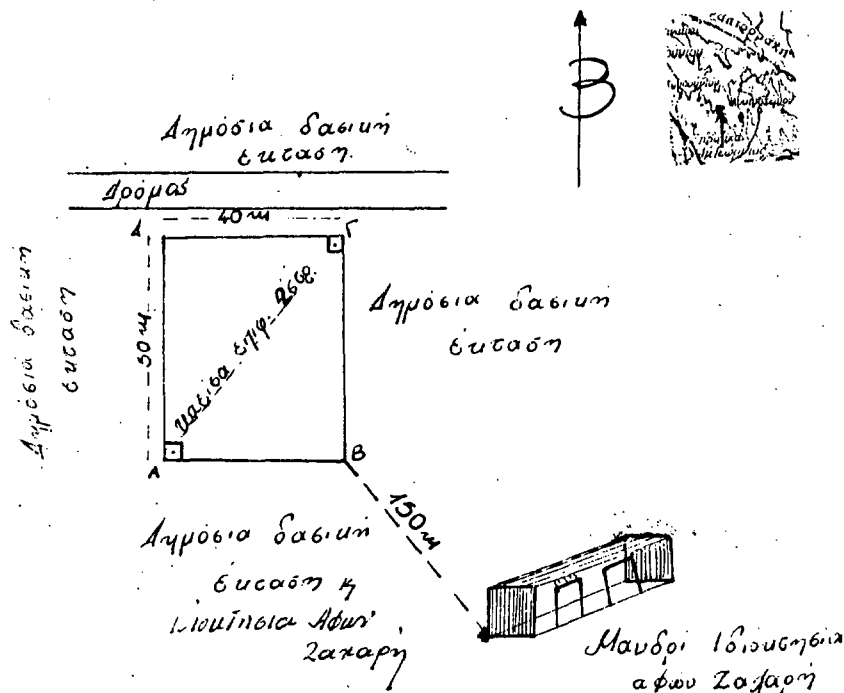 Β
Δημόσια δασική
έκταση.
Δρόμος
40 m
Δ
Γ
50 m
Δημόσια δασική
έκταση
επιφ. 2στρ.
Δημόσια δασική
έκταση
Α
Β
150 m
Δημόσια δασική
έκταση η
Αφών
Ζαχαρή
Μανδρί Ιδιοκτησία
αφών Ζαχαρή